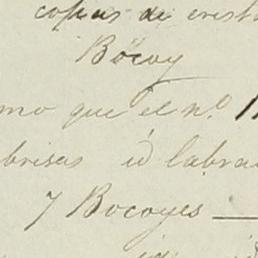 copas de crist
Bocoy
mo que el n.º 1
brisas id labra
7 Bocoyes
id